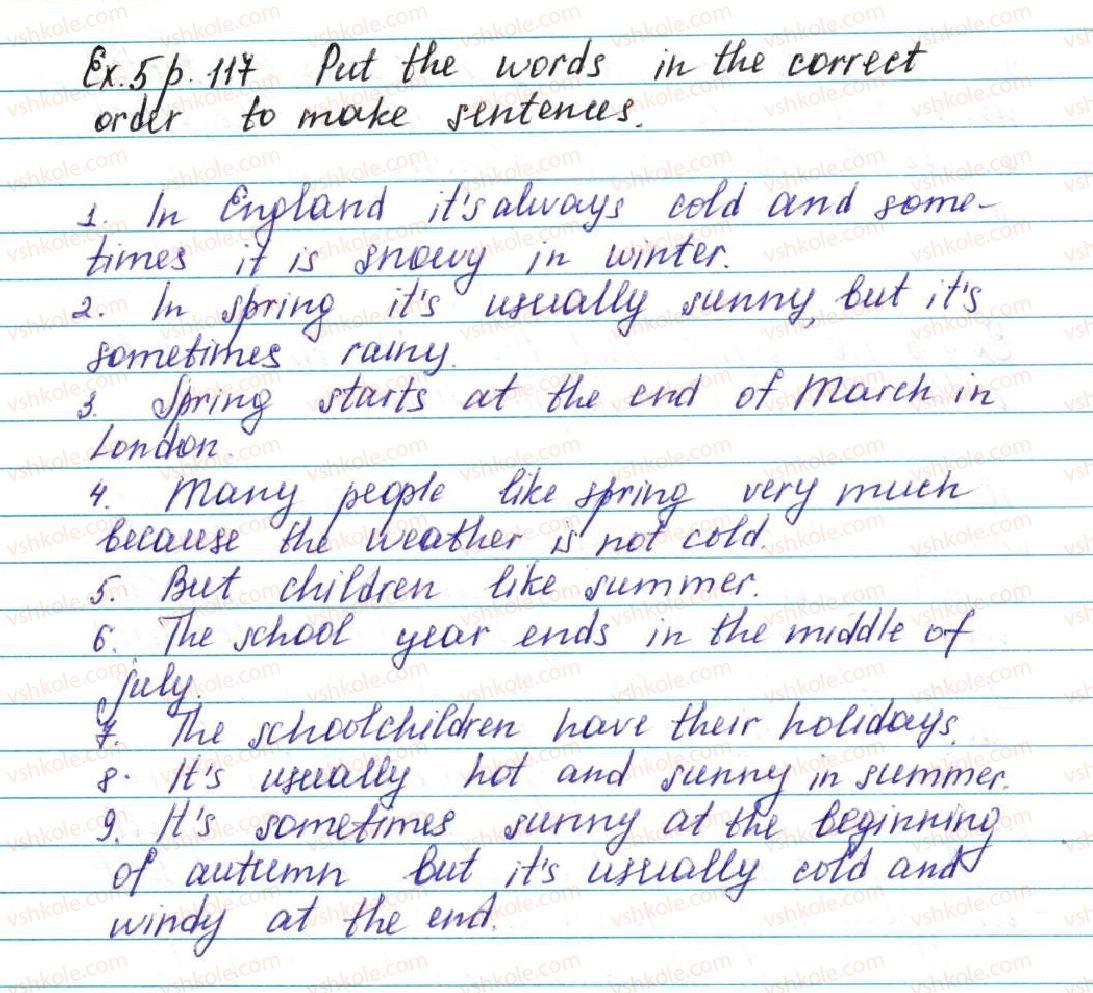 Ex. 5 p. 117 Put the words in the correct
order to make sentences.
1. In England it's always cold and some-
times it is snowy in winter.
2. In spring it's usually sunny, but it's
sometimes rainy.
3. Spring starts at the end of March in
London.
4. Many people like spring very much
because the weather is not cold.
5. But children like summer.
6. The school year ends in the middle of
july.
7. The schoolchildren have their holidays.
8. It's usually hot and sunny in summer.
9. It's sometimes sunny at the beginning
of autumn but it's usually cold and
windy at the end.